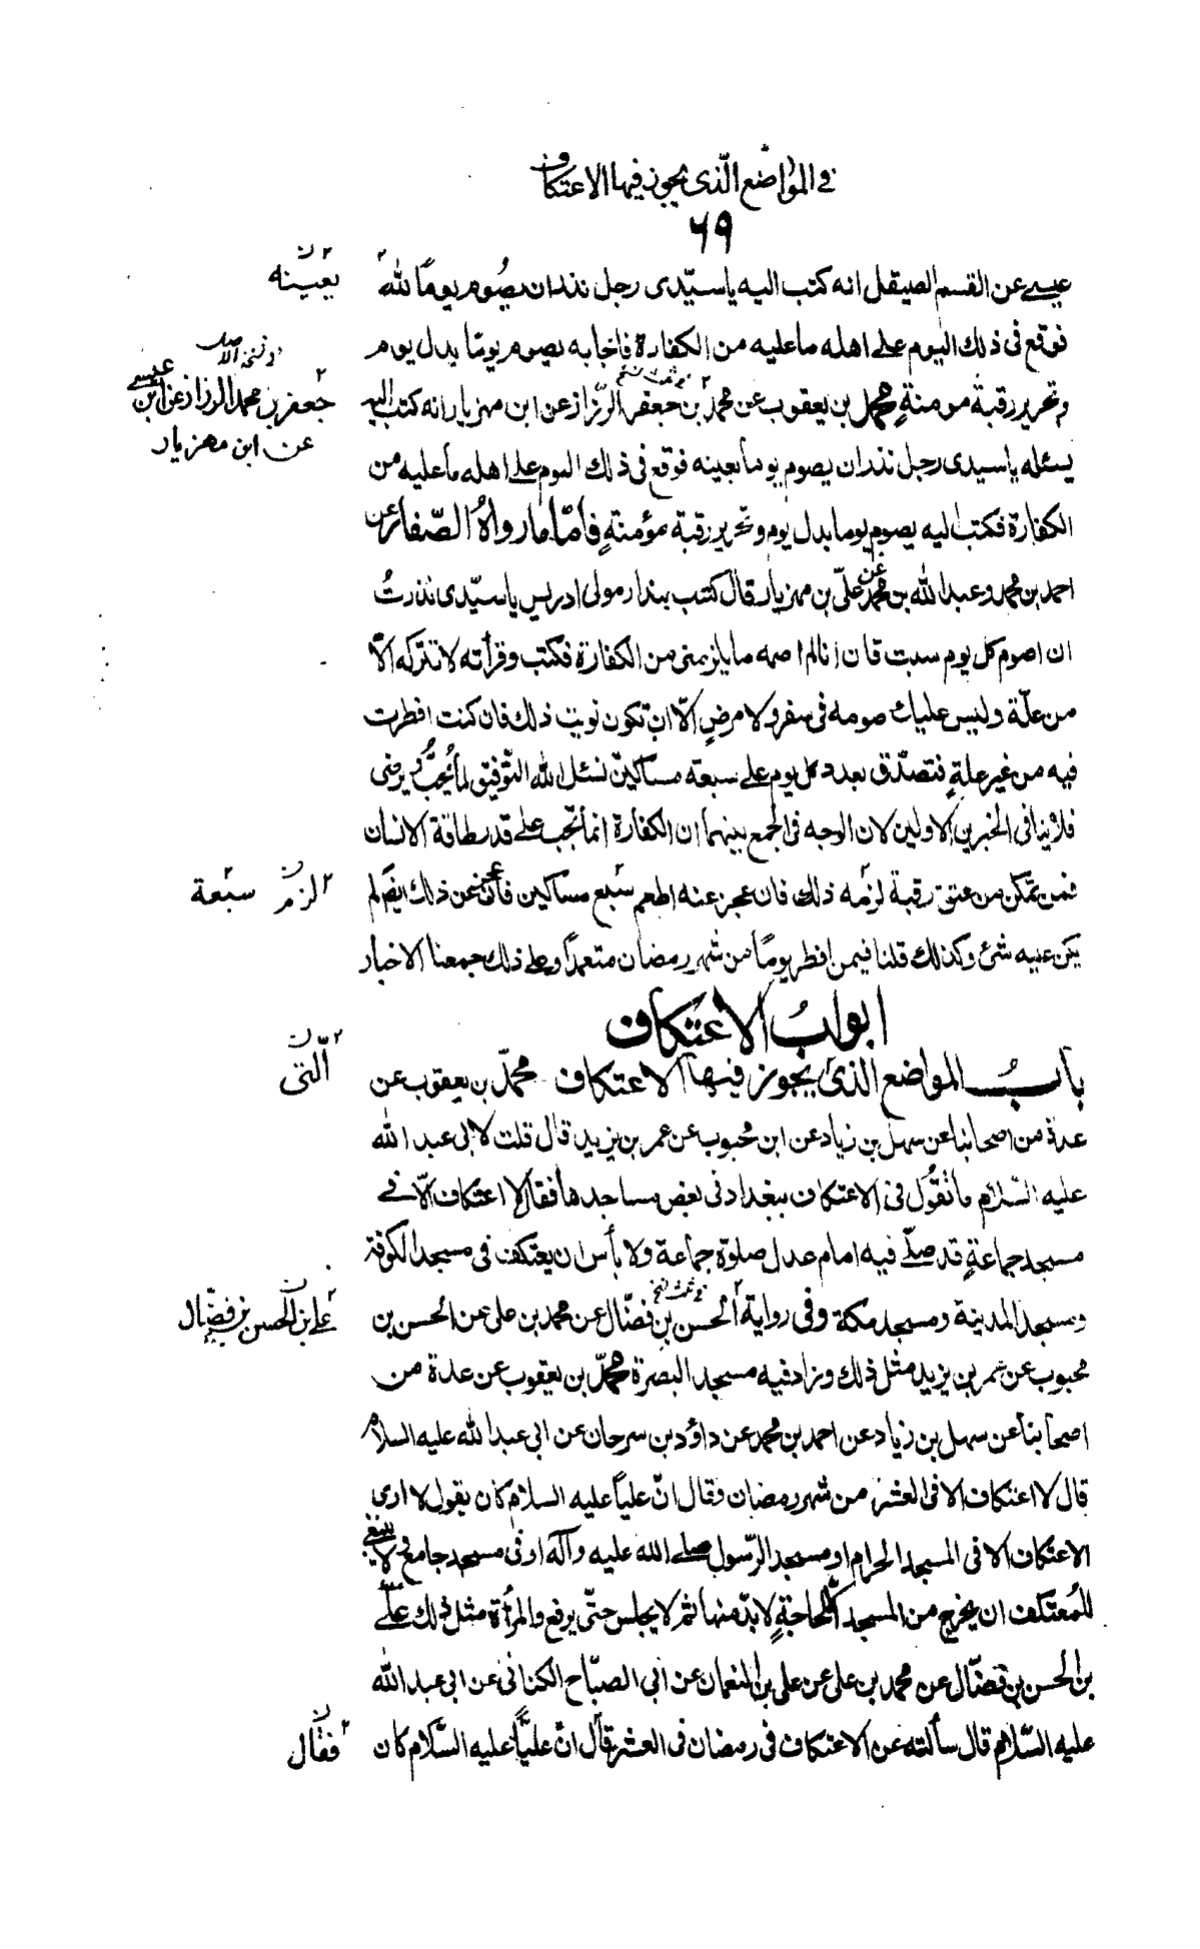 في المواضع الّذي يجوز فيها الاعتكاف
٦٩
عيسى عن القسم الصيقل انه كتب اليه يا سيّدي رجل نذر ان يصُوم يومًا لله
بعينه
فوقع في ذلك اليوم على اهله ما عليه من الكفارة فاجابه يصوم يومًا بدل يوم
وتحرير رقبة مومنةٍ محمد بن يعقوب عن محمد بن جعفر الرّزاز عن ابن مهزيار انه كتب اليه
جعفر بن محمد الرزاز عن ابن عيسى
عن ابن مهزيار
يسئله يا سيدي رجل نذر ان يصوم يوما بعينه فوقع في ذلك اليوم على اهله ما عليه من
الكفارة فكتب اليه يصوم يوما بدل يوم وتحرير رقبة مؤمنةٍ فأمّا ما رواهُ الصّفار عن
احمد بن محمد وعبد الله بن محمد عن علىّ بن مهزيار قال كتب بندار مولى ادريس يا سيّدي نذرتُ
ان اصوم كل يوم سبت فان انا لم اصمه ما يلزمني من الكفارة فكتب وقرأته لا تتركه الّا
من علّة وليس عليك صومه في سفر ولا مرضٍ الّا ان تكون نويت ذلك فان كنت افطرت
فيه من غير علةٍ فتصدّق بعدد كل يوم على سبعة مساكين نسئل الله التّوفيق لما يُحبُّ ويرضى
فلا ينافي الخبرين الاولين لان الوجه في الجمع بينهما ان الكفارة انما تجب على قدر طاقة الانسان
فمن تمكن من عتق رقبة لزمه ذلك فان عجز عنه اطعم سبع مساكين فان عجز عن ذلك ايضًا لم
لزم سبعة
يكن عليه شئ وكذلك قلنا فيمن افطر يومًا من شهر رمضان متعمدًا وعلى ذلك جمعنا الاخبار
ابوابُ الاعتكاف
بابُ المواضع الذي يجوز فيها الاعتكاف محمّد بن يعقوب عن
الّتي
عدة من اصحابنا عن سهل بن زياد عن ابن محبوب عن عمر بن يزيد قال قلت لابى عبد الله
عليه السّلام ما تقُول في الاعتكاف ببغداد في بعض مساجدها فقال لا اعتكاف الّا في
مسجد جماعةٍ قد صلّى فيه امام عدل صلوة جماعة ولا بأس ان يعتكف في مسجد الكوفة
ومسجد المدينة ومسجد مكة وفي رواية الحسن بن فضّال عن محمد بن على عن الحسن بن
على بن الحسن بن فضّال
محبوب عن عمر بن يزيد مثل ذلك وزاد فيه مسجد البصرة محمّد بن يعقوب عن عدة من
اصحابنا عن سهل بن زياد عن احمد بن محمد عن داؤد بن سرحان عن ابي عبد الله عليه السلام
قال لا اعتكاف الا في العشر من شهر رمضان وقال انّ علياً عليه السلام كان يقول لا ارى
الاعتكاف الا في المسجد الحرام او مسجد الرّسول صلى الله عليه وآله او في مسجد جامع ولا ينبغي
للمُعتكف ان يخرج من المسجد الّا لحاجةٍ لا بدّ منها ثم لا يجلس حتّى يرجع والمرأة مثل ذلك علىّ
بن الحسن بن فضّال عن محمد بن على عن على بن النعمان عن ابي الصبّاح الكناني عن ابي عبد الله
عليه السّلام قال سألته عن الاعتكاف في رمضان في العشر قال انّ عليًّا عليه السّلام كان
فقال